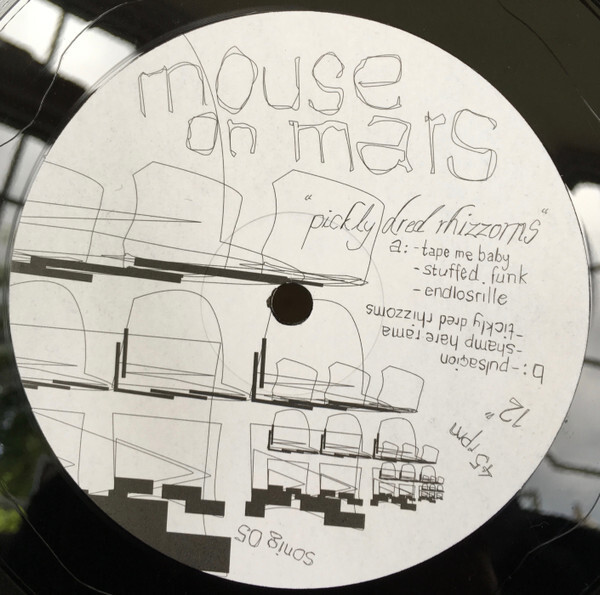 mouse
on mars
"pickly dred rhizzoms"
a: - tape me baby
- stuffed funk
- endlosrille
b: - pulsagion
- shamp hare rama
- tickly dred rhizzoms
12"
45 rpm
sonig 05